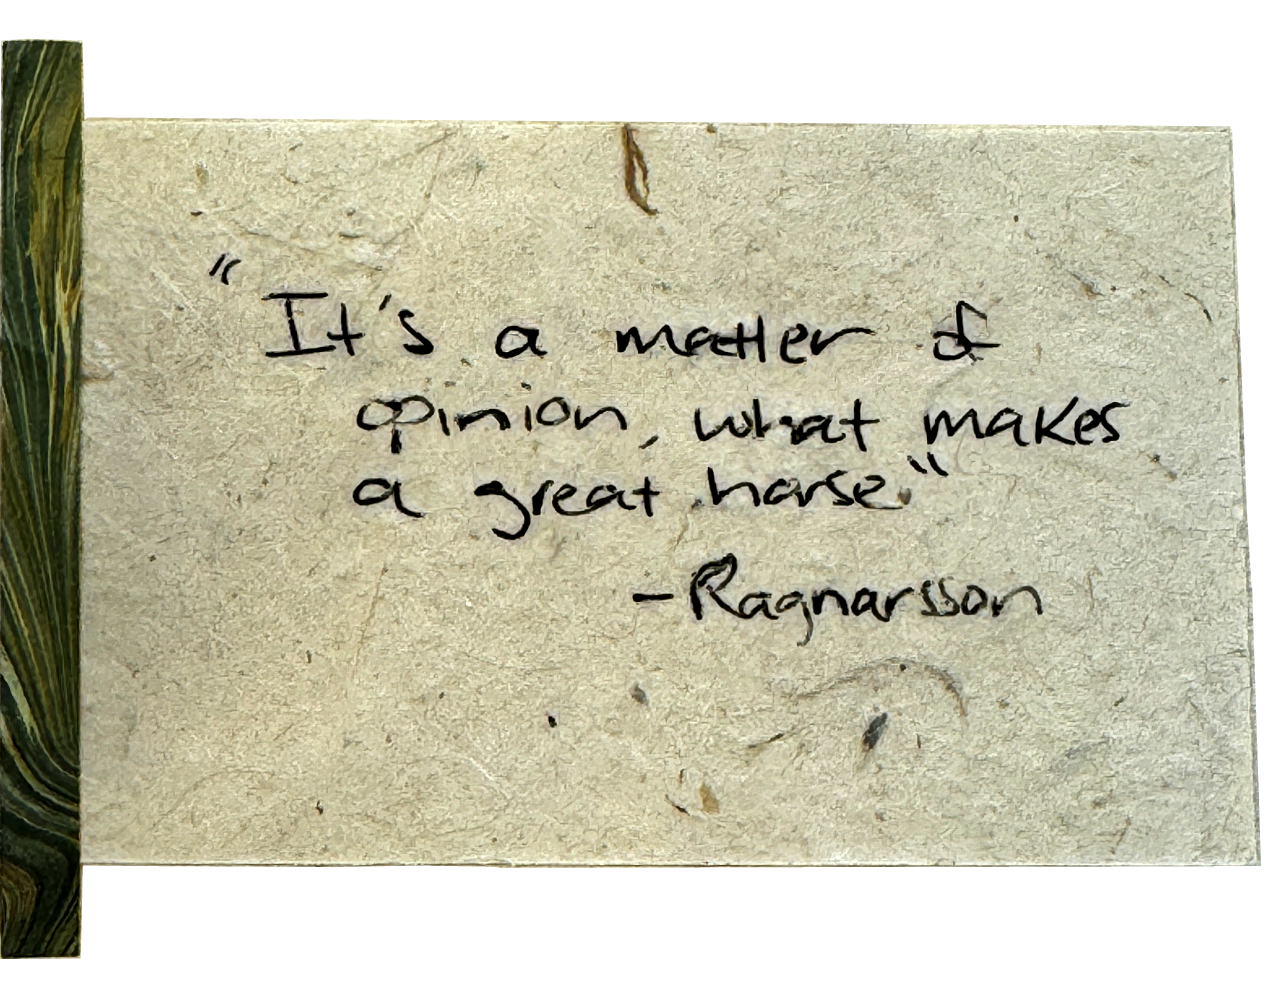 "It's a matter of
opinion, what makes
a great horse."
-Ragnarsson